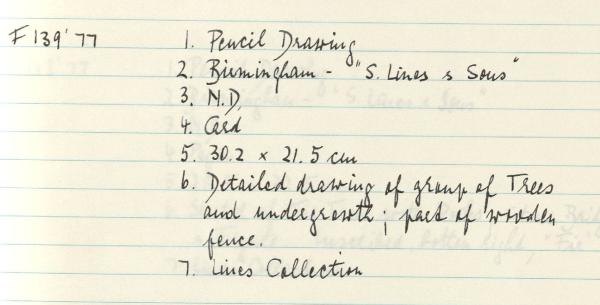 F 139'77 1. Pencil Drawing
2. Birmingham - "S. Lines & Sons"
3. N.D.
4. Card
5. 30.2 x 21.5 cm
6. Detailed drawing of group of Trees
and undergrowth; part of wooden
fence.
7. Lines Collection